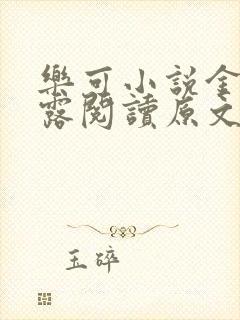 樂可小說金
露閱讀原文
玉碎